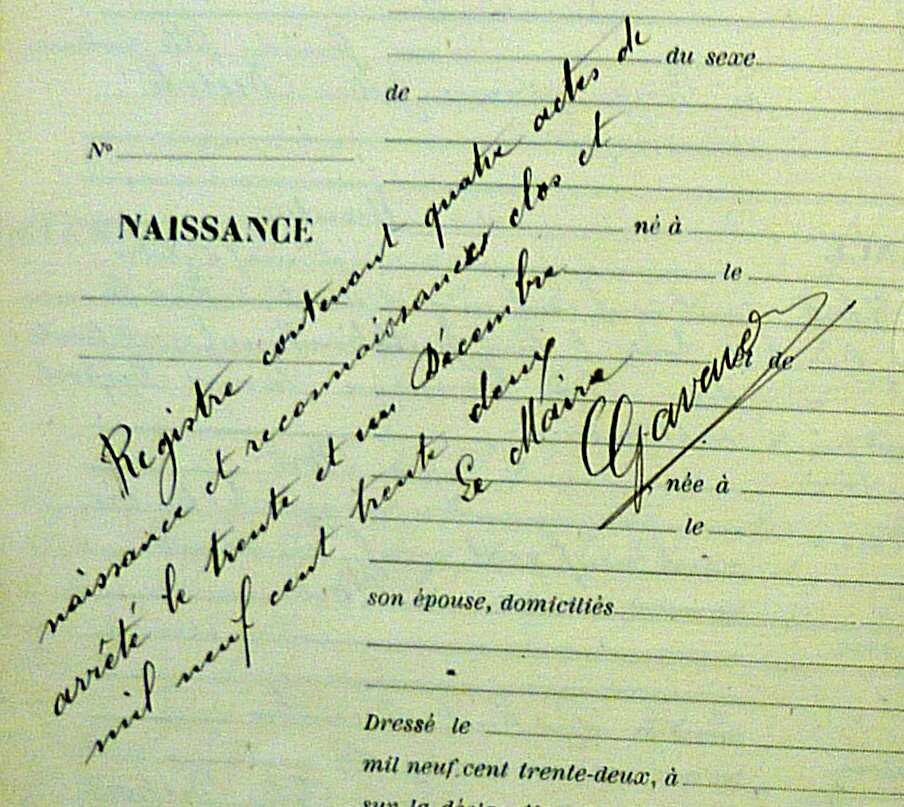 du sexe
de
Nº
NAISSANCE
né à
le
et de
née à
le
son épouse, domiciliés
Dressé le
mil neuf cent trente-deux, à
Registre contenant quatre actes de
naissance et reconnaissances clos et
arrêté le trente et un Décembre
mil neuf cent trente deux
Le Maire